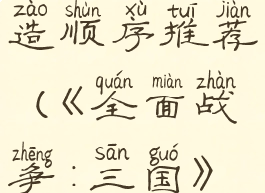 zào shùn xù tuī jiàn
造顺序推荐
quán miàn zhàn
(《全面战
zhēng sān guó
争:三国》